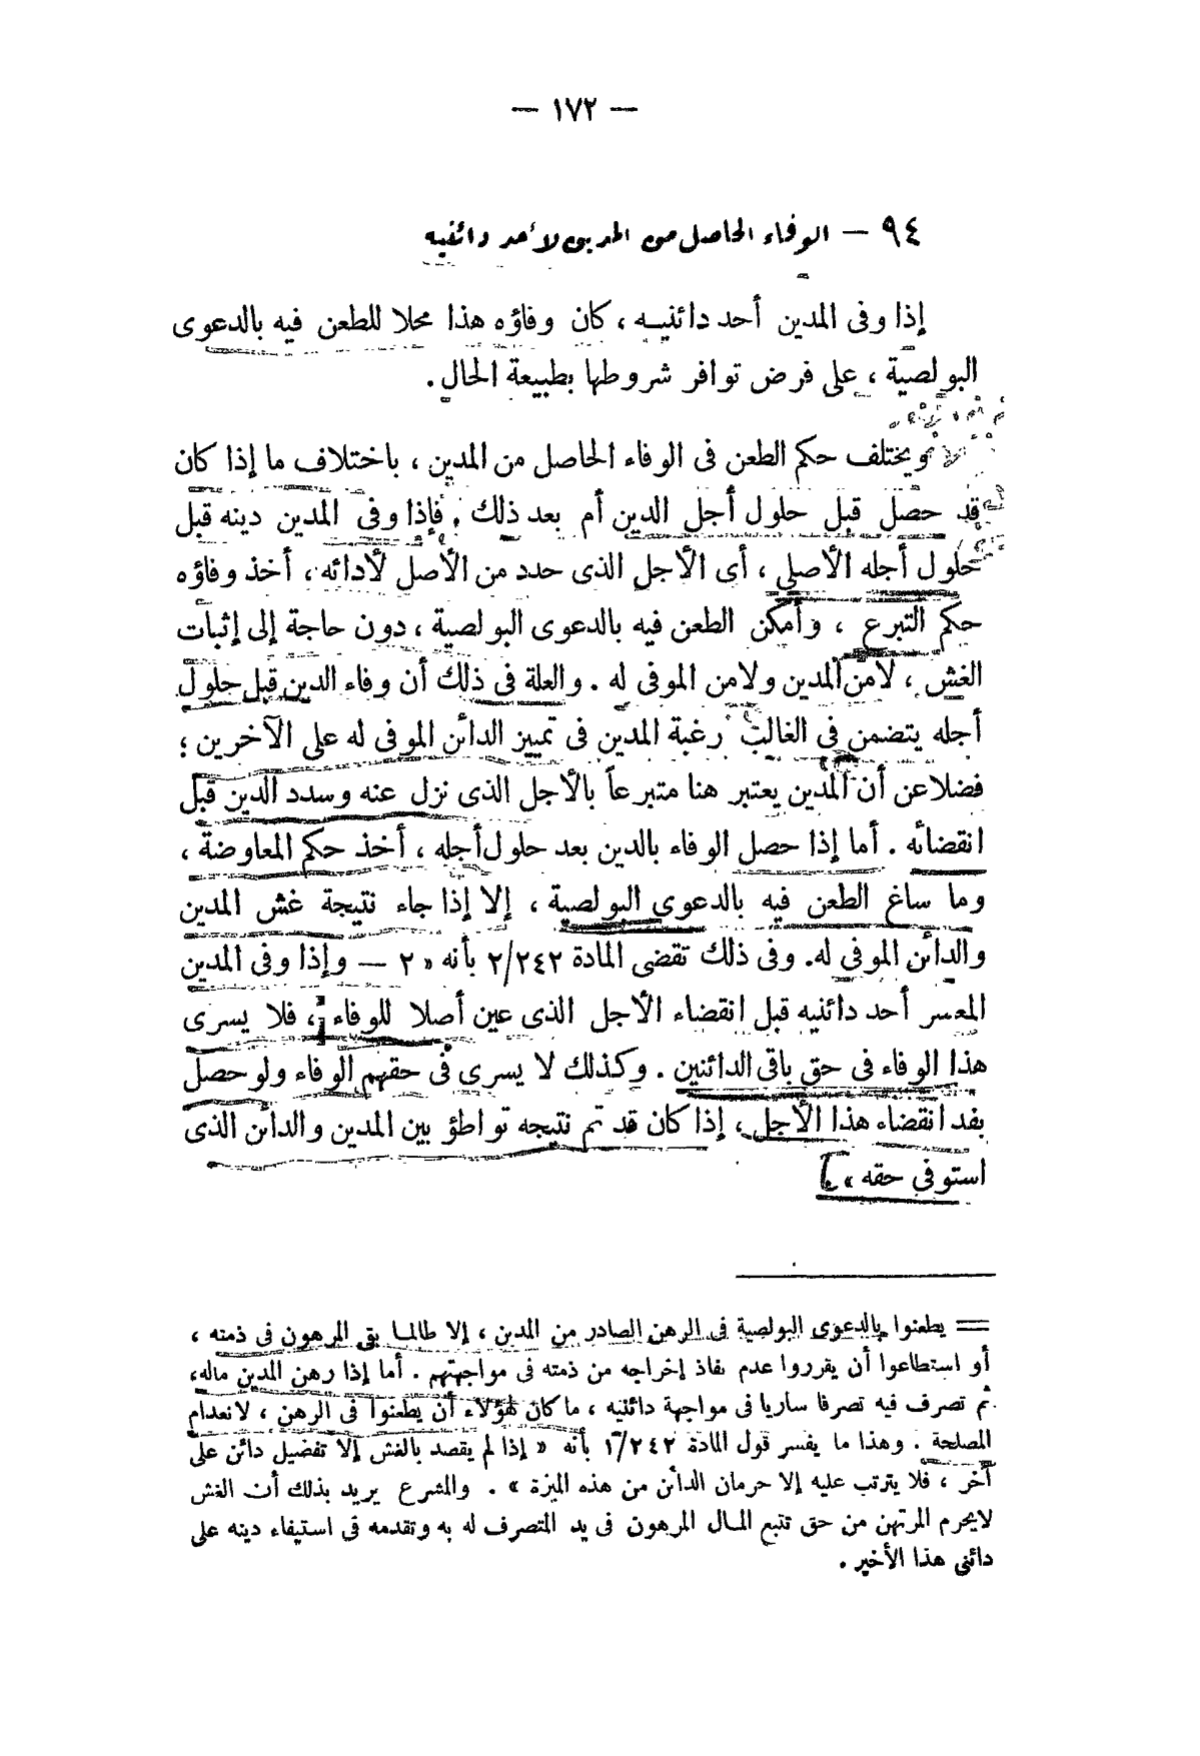 — ١٧٢ —
٩٤ — الوفاء الحاصل من المدين لأحد دائنيه
إذا وفى المدين أحد دائنيه ، كان وفاؤه هذا محلا للطعن فيه بالدعوى
البولصية ، على فرض توافر شروطها بطبيعة الحال .
ويختلف حكم الطعن فى الوفاء الحاصل من المدين ، باختلاف ما إذا كان
قد حصل قبل حلول أجل الدين أم بعد ذلك . فإذا وفى المدين دينه قبل
حلول أجله الأصلي ، أى الأجل الذى حدد من الأصل لأدائه ، أخذ وفاؤه
حكم التبرع ، وأمكن الطعن فيه بالدعوى البولصية ، دون حاجة إلى إثبات
الغش ، لامن المدين ولامن الموفى له . والعلة فى ذلك أن وفاء الدين قبل حلول
أجله يتضمن فى الغالب رغبة المدين فى تمييز الدائن الموفى له على الآخرين ؛
فضلا عن أن المدين يعتبر هنا متبرعاً بالأجل الذى نزل عنه وسدد الدين قبل
انقضائه . أما إذا حصل الوفاء بالدين بعد حلول أجله ، أخذ حكم المعاوضة ،
وما ساغ الطعن فيه بالدعوى البولصية ، إلا إذا جاء نتيجة غش المدين
والدائن الموفى له. وفى ذلك تقضى المادة ٢/٢٤٢ بأنه « ٢ — وإذا وفى المدين
المعسر أحد دائنيه قبل انقضاء الأجل الذى عين أصلا للوفاء ، فلا يسرى
هذا الوفاء فى حق باقى الدائنين . وكذلك لا يسرى فى حقهم الوفاء ولو حصل
بفد انقضاء هذا الأجل ، إذا كان قد تم نتيجه تواطؤ بين المدين والدائن الذى
استوفى حقه » .
== يطعنوا بالدعوى البولصية فى الرهن الصادر من المدين ، إلا طالما بقى المرهون فى ذمته ،
أو استطاعوا أن يقرروا عدم نفاذ إخراجه من ذمته فى مواجهتهم . أما إذا رهن المدين ماله،
ثم تصرف فيه تصرفا ساريا فى مواجهة دائنيه ، ما كان لهؤلاء أن يطعنوا فى الرهن ، لانعدام
المصلحة . وهذا ما يفسر قول المادة ١/٢٤٢ بأنه « إذا لم يقصد بالغش إلا تفضيل دائن على
آخر ، فلا يترتب عليه إلا حرمان الدائن من هذه الميزة » . والمشرع يريد بذلك أن الغش
لايحرم المرتهن من حق تتبع المال المرهون فى يد المتصرف له به وتقدمه فى استيفاء دينه على
دائنى هذا الأخير .